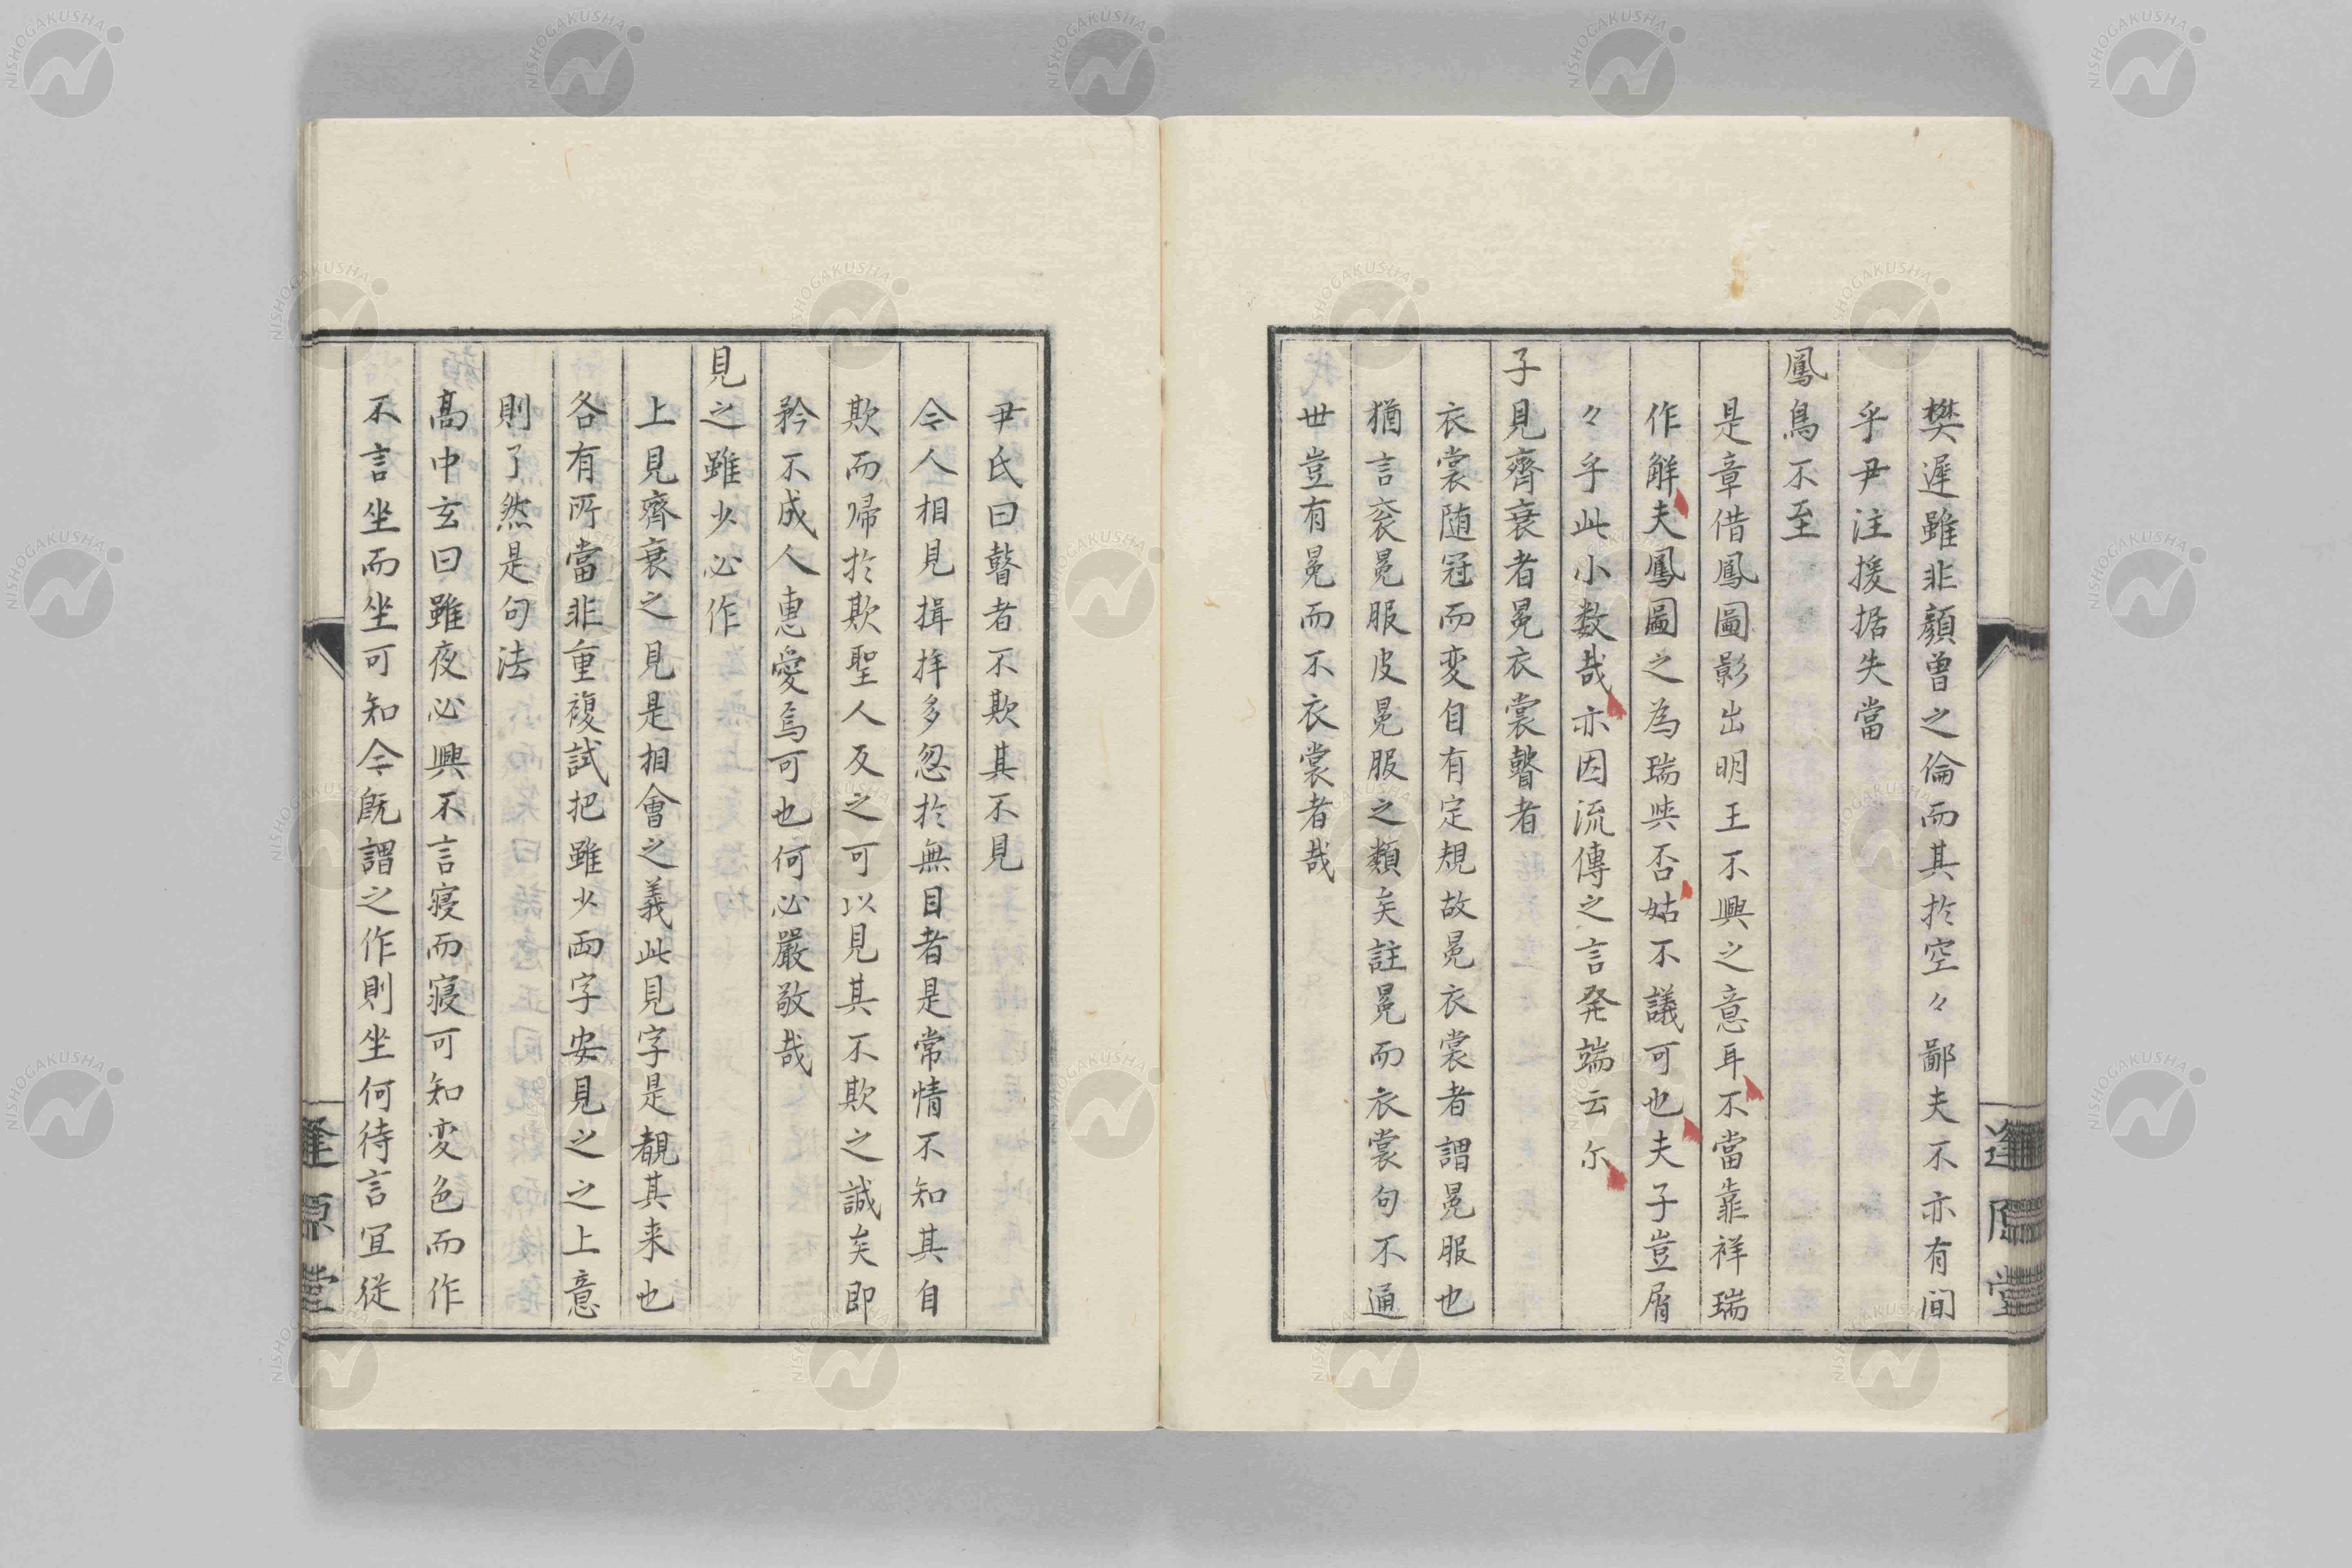 樊遲雖非顏曽之倫而其於空々鄙夫不亦有間
乎尹注援据失當
鳳鳥不至
是章借鳳圖影出明王不興之意耳不當靠祥瑞
作解夫鳳圖之為瑞與否姑不議可也夫子豈屑
々乎此小数哉亦因流傳之言発端云尓
子見齊衰者冕衣裳瞽者
衣裳随冠而変自有定規故冕衣裳者謂冕服也
猶言衮冕服皮冕服之類矣註冕而衣裳句不通
世豈有冕而不衣裳者哉
尹氏曰瞽者不欺其不見
今人相見揖拝多忽於無目者是常情不知其自
欺而帰於欺聖人反之可以見其不欺之誠矣即
矜不成人惠愛焉可也何必嚴敬哉
見之雖少必作
上見齊衰之見是相會之義此見字是覩其来也
各有所當非重複試把雖少両字安見之之上意
則了然是句法
高中玄曰雖夜必興不言寝而寝可知変色而作
不言坐而坐可知今既謂之作則坐何待言宜従
逢原堂
逢原堂